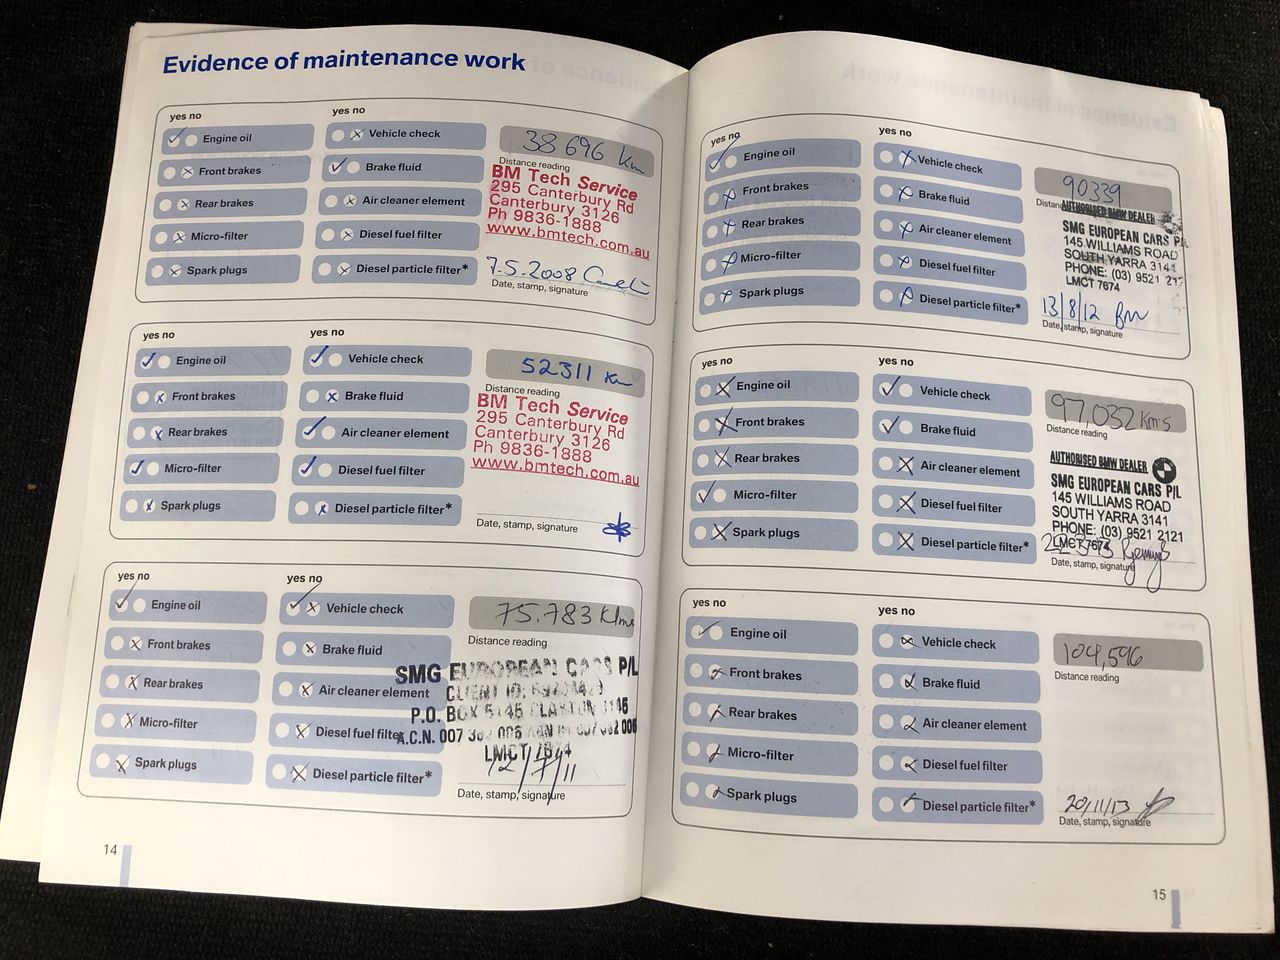 Evidence of maintenance work
yes no
yes no
Engine oil
Vehicle check
Front brakes
Brake fluid
Rear brakes
Air cleaner element
Micro-filter
Diesel fuel filter
Spark plugs
Diesel particle filter*
38 696 km
Distance reading
BM Tech Service
295 Canterbury Rd
Canterbury 3126
Ph 9836-1888
www.bmtech.com.au
7.5.2008
Date, stamp, signature
yes no
yes no
Engine oil
Vehicle check
Front brakes
Brake fluid
Rear brakes
Air cleaner element
Micro-filter
Diesel fuel filter
Spark plugs
Diesel particle filter*
52311 km
Distance reading
BM Tech Service
295 Canterbury Rd
Canterbury 3126
Ph 9836-1888
www.bmtech.com.au
Date, stamp, signature
yes no
yes no
Engine oil
Vehicle check
Front brakes
Brake fluid
Rear brakes
Air cleaner element
Micro-filter
Diesel fuel filter
Spark plugs
Diesel particle filter*
75.783 Klms
Distance reading
SMG EUROPEAN CARS P/L
CLIENT ID:
P.O. BOX 5145 CLAYTON 3145
A.C.N. 007
LMCT 7674
12/7/11
Date, stamp, signature
14
yes no
yes no
Engine oil
Vehicle check
Front brakes
Brake fluid
Rear brakes
Air cleaner element
Micro-filter
Diesel fuel filter
Spark plugs
Diesel particle filter*
90339
AUTHORISED BMW DEALER
SMG EUROPEAN CARS P/L
145 WILLIAMS ROAD
SOUTH YARRA 3141
PHONE: (03) 9521 212
LMCT 7674
13/8/12
Date, stamp, signature
yes no
yes no
Engine oil
Vehicle check
Front brakes
Brake fluid
Rear brakes
Air cleaner element
Micro-filter
Diesel fuel filter
Spark plugs
Diesel particle filter*
97,032 kms
Distance reading
AUTHORISED BMW DEALER
SMG EUROPEAN CARS P/L
145 WILLIAMS ROAD
SOUTH YARRA 3141
PHONE: (03) 9521 2121
LMCT 7674
Date, stamp, signature
yes no
yes no
Engine oil
Vehicle check
Front brakes
Brake fluid
Rear brakes
Air cleaner element
Micro-filter
Diesel fuel filter
Spark plugs
Diesel particle filter*
104,596
Distance reading
20/11/13
Date, stamp, signature
15